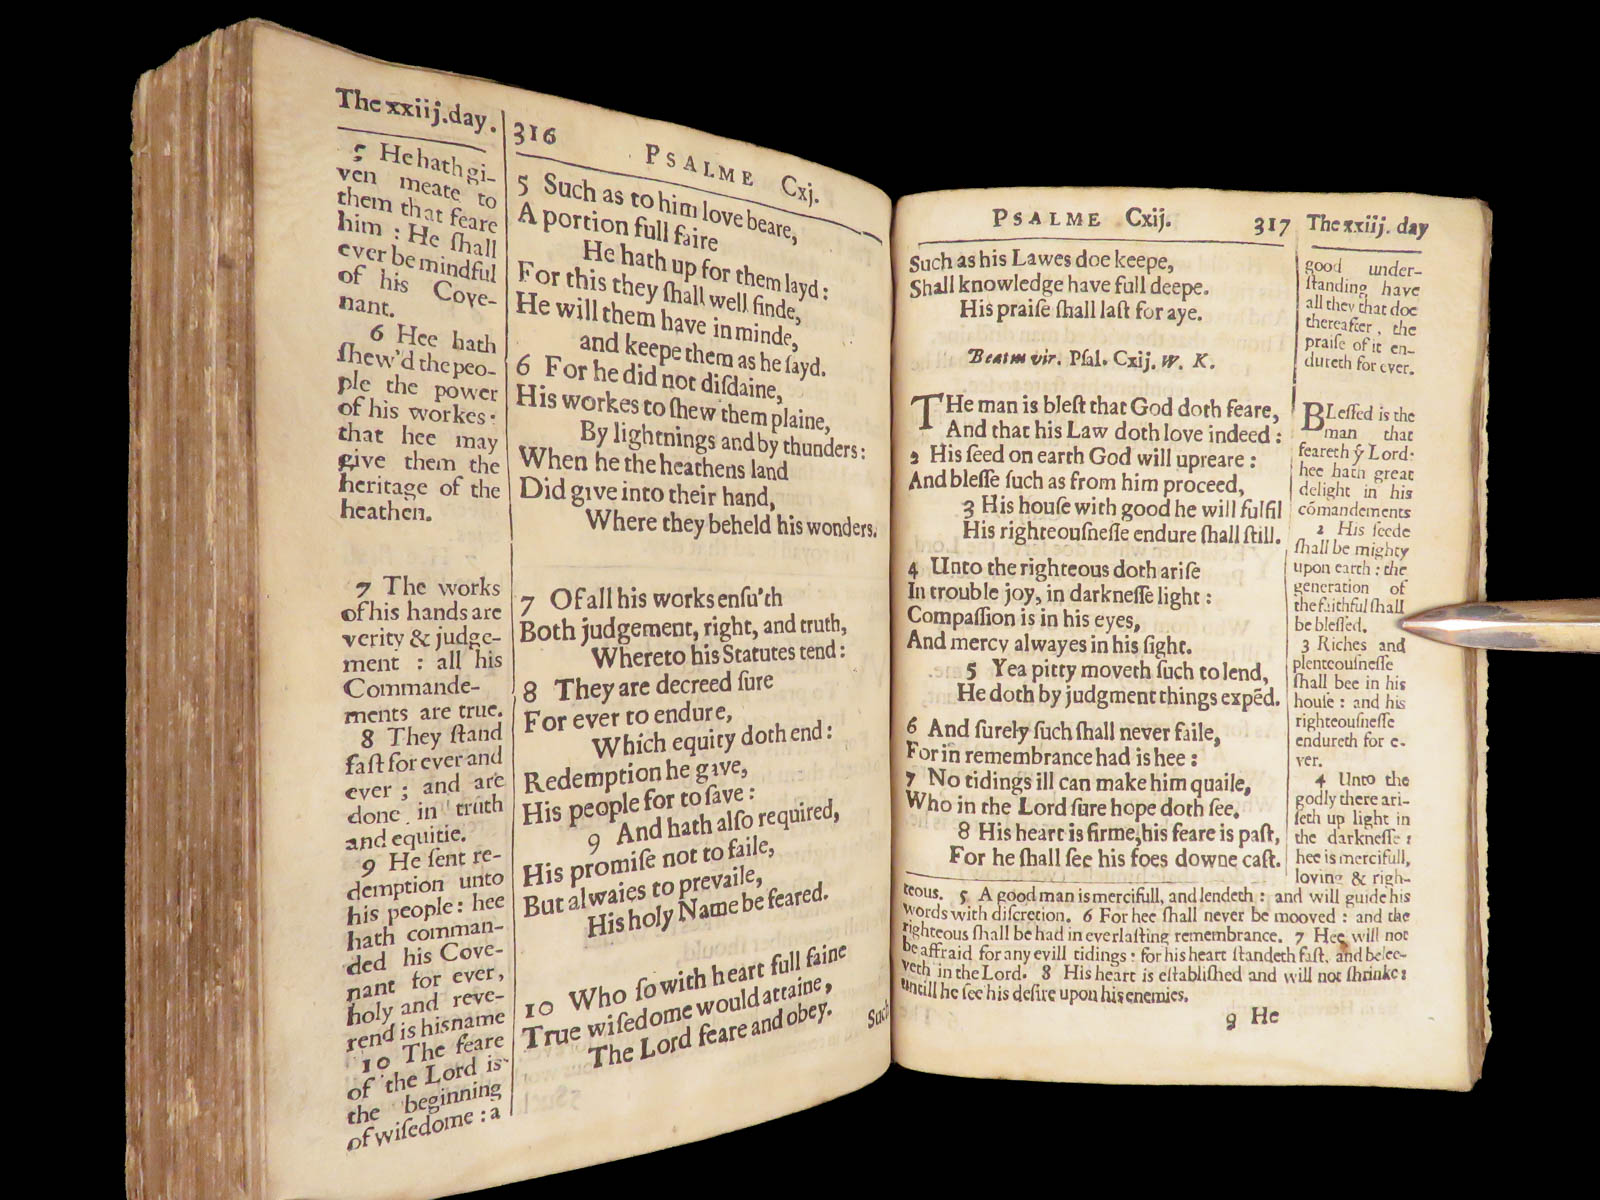 The xxiij.day.
5 He hath gi-
ven meate to
them that feare
him : He ſhall
ever be mindful
of his Cove-
nant.
6 Hee hath
ſhew'd the peo-
ple the power
of his workes:
that hee may
give them the
heritage of the
heathen.
7 The works
of his hands are
verity & judge-
ment : all his
Commande-
ments are true.
8 They ſtand
faſt for ever and
ever ; and are
done in truth
and equitie.
9 He ſent re-
demption unto
his people: hee
hath comman-
ded his Cove-
nant for ever,
holy and reve-
rend is his name
10 The feare
of the Lord is
the beginning
of wiſedome : a
316 PSALME Cxj.
5 Such as to him love beare,
A portion full faire
He hath up for them layd :
For this they ſhall well finde,
He will them have in minde,
and keepe them as he ſayd.
6 For he did not diſdaine,
His workes to ſhew them plaine,
By lightnings and by thunders:
When he the heathens land
Did give into their hand,
Where they beheld his wonders.
7 Of all his works enſu'th
Both judgement, right, and truth,
Whereto his Statutes tend :
8 They are decreed ſure
For ever to endure,
Which equity doth end :
Redemption he gave,
His people for to ſave :
9 And hath alſo required,
His promiſe not to faile,
But alwaies to prevaile,
His holy Name be feared.
10 Who ſo with heart full faine
True wiſedome would attaine,
The Lord feare and obey.
Such
PSALME Cxij. 317
Such as his Lawes doe keepe,
Shall knowledge have full deepe.
His praiſe ſhall laſt for aye.
Beatus vir. Pſal. Cxij. W. K.
THe man is bleſt that God doth feare,
And that his Law doth love indeed :
2 His ſeed on earth God will upreare :
And bleſſe ſuch as from him proceed,
3 His houſe with good he will fulfil
His righteouſneſſe endure ſhall ſtill.
4 Unto the righteous doth ariſe
In trouble joy, in darkneſſe light :
Compaſſion is in his eyes,
And mercy alwayes in his ſight.
5 Yea pitty moveth ſuch to lend,
He doth by judgment things expēd.
6 And ſurely ſuch ſhall never faile,
For in remembrance had is hee :
7 No tidings ill can make him quaile,
Who in the Lord ſure hope doth ſee.
8 His heart is firme,his feare is paſt,
For he ſhall ſee his foes downe caſt.
The xxiij. day
good under-
ſtanding have
all they that doe
thereafter, the
praiſe of it en-
dureth for ever.
BLeſſed is the
man that
feareth ẏ Lord:
hee hath great
delight in his
cōmandements
2 His ſeede
ſhall be mighty
upon earth : the
generation of
the faithful ſhall
be bleſſed.
3 Riches and
plenteouſneſſe
ſhall bee in his
houſe : and his
righteouſneſſe
endureth for e-
ver.
4 Unto the
godly there ari-
ſeth up light in
the darkneſſe :
hee is mercifull,
loving & righ-
teous. 5 A good man is mercifull, and lendeth : and will guide his
words with diſcretion. 6 For hee ſhall never be mooved : and the
righteous ſhall be had in everlaſting remembrance. 7 Hee will not
be affraid for any evill tidings : for his heart ſtandeth faſt, and belee-
veth in the Lord. 8 His heart is eſtabliſhed and will not ſhrinke:
untill he ſee his deſire upon his enemies.
9 He